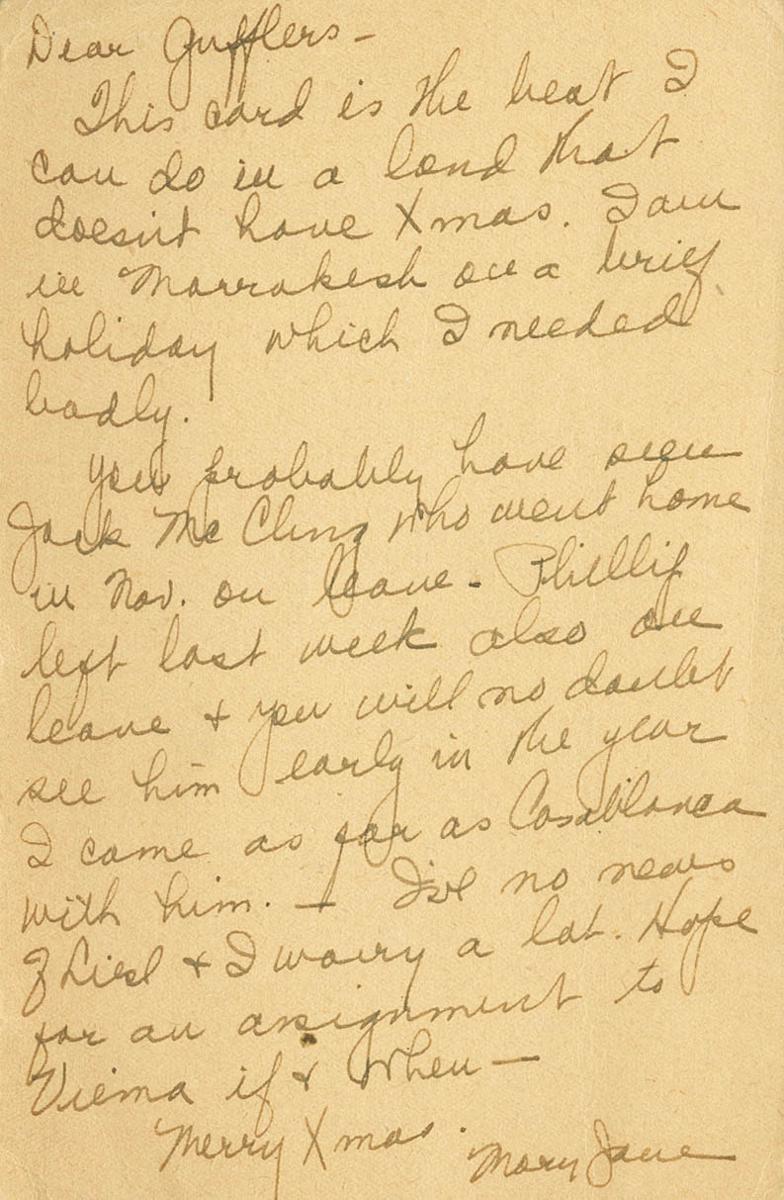 Dear Gufflers -
This card is the best I
can do in a land that
doesn't have Xmas. I am
in Marrakesh on a brief
holiday which I needed
badly.
You probably have seen
Jack Mc Clung who went home
in Nov. on leave - Phillip
left last week also on
leave + you will no doubt
see him early in the year
I came as far as Casablanca
with him. — I've no news
of Liesl + I worry a lot. Hope
for an assignment to
Vienna if + when —
Merry Xmas.
Mary Jane